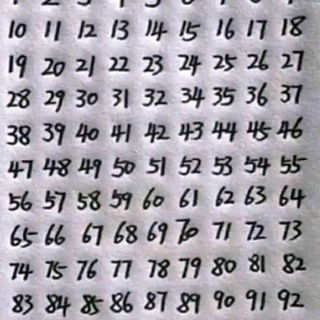 10 11 12 13 14 15 16 17 18
19 20 21 22 23 24 25 26 27
28 29 30 31 32 34 35 36 37
38 39 40 41 42 43 44 45 46
47 48 49 50 51 52 53 54 55
56 57 58 59 60 61 62 63 64
65 66 67 68 69 70 71 72 73
74 75 76 77 78 79 80 81 82
83 84 85 86 87 89 90 91 92